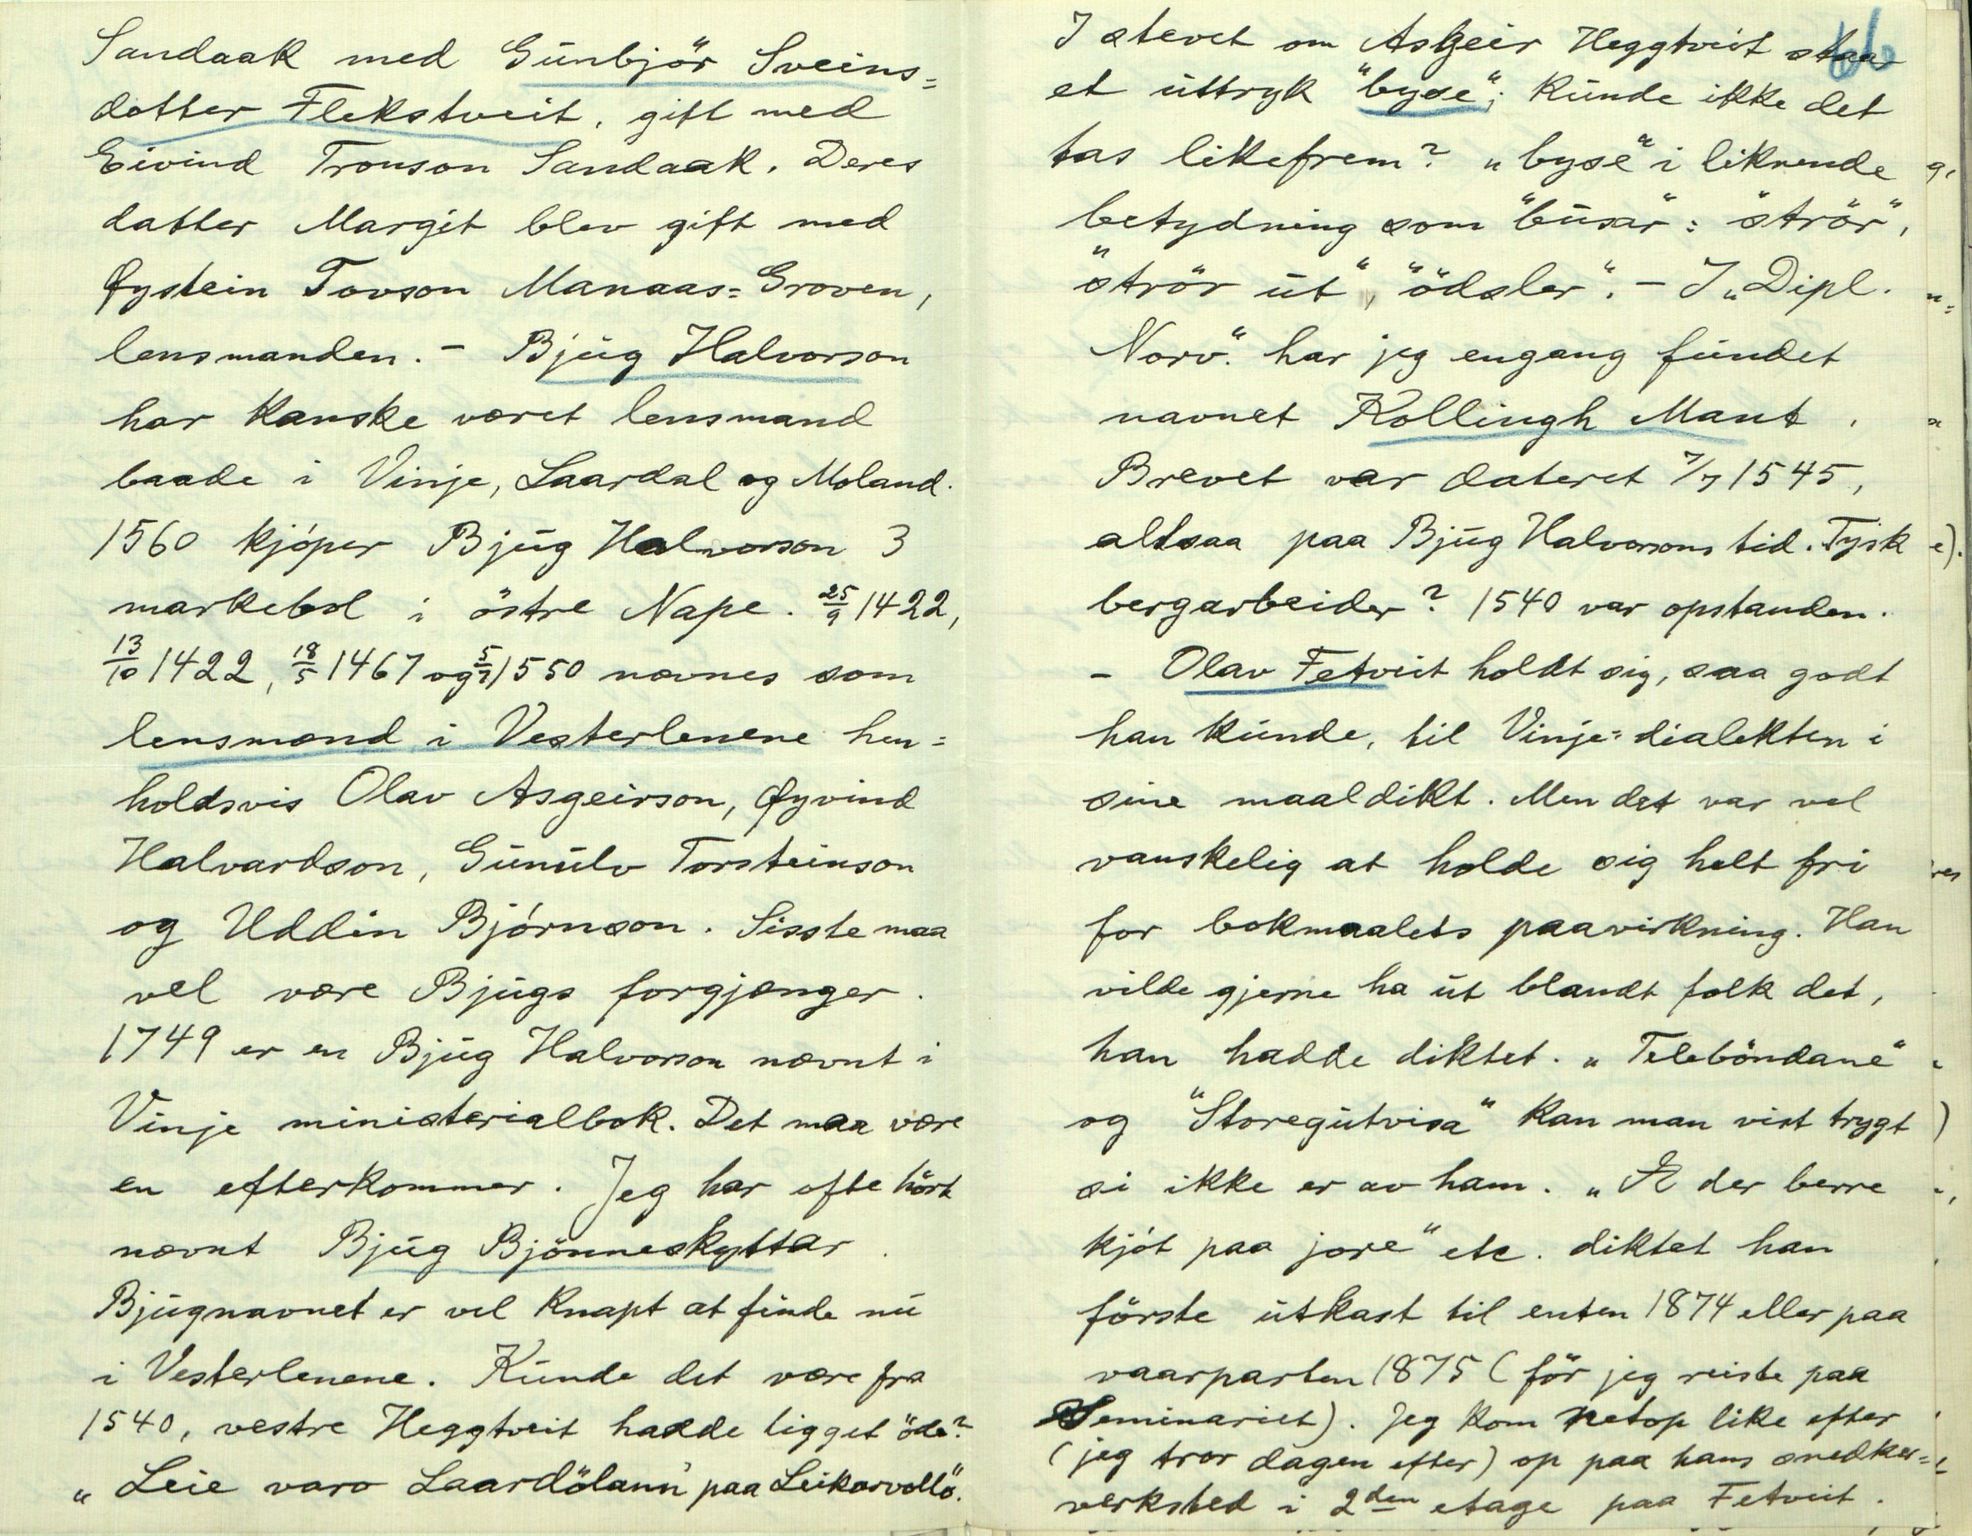 Sandaak med Gunbjör Sveins=
dotter Flekstveit, gift med
Eivind Tronson Sandaak. Deres
datter Margit blev gift med
Øystein Tovson Manaas=Groven,
lensmanden. – Bjug Halvorson
har kanske været lensmand
baade i Vinje, Laardal og Moland.
1560 kjóper Bjug Halvorson 3
markebol i östre Nape. 25/9 1422,
13/10 1422, 18/5 1467 og 5/7 1550 nævnes som
lensmænd i Vesterlenene hen=
holdsvis Olav Asgeirson, Øyvind
Halvardson, Gunulv Torsteinson
og Uddin Bjórnson. Sisste maa
vel være Bjugs forgjænger.
1749 er en Bjug Halvorson nævnt i
Vinje ministerialbok. Det maa være
en efterkommer. Jeg har ofte hört
nævnt Bjug Bjönneskyttar.
Bjugnavnet er vel knapt at finde nu
i Vesterlenene. Kunde det være fra
1540, vestre Heggtveit hadde ligget öde?
„Leie varo Laardölann' paa Leikarvollö".
66
I stevet om Asgeir Heggtveit staar
et uttryk "byse"; kunde ikke det
tas likefrem? „byse" i liknende
betydning som "busar": "strör",
"strör ut", "ödsler". – I „Dipl.
Norv". har jeg engang fundet
navnet Kollingh Mant.
Brevet var dateret 7/7 1545,
altsaa paa Bjug Halvorsons tid. Tysk
bergarbeider? 1540 var opstanden.
– Olav Fetveit holdt sig, saa godt
han kunde, til Vinje=dialekten i
sine maaldikt. Men det var vel
vanskelig at holde sig helt fri
for bokmaalets paavirkning. Han
vilde gjerne ha ut blandt folk det,
han hadde diktet. „Teleböndane"
og "Storegutvisa" kan man vist trygt
si ikke er av ham. „Æ der berre
kjót paa jore" etc. diktet han
förste utkast til enten 1874 eller paa
vaarparten 1875 (för jeg reiste paa
Seminariet). Jeg kom netop like efter
(jeg tror dagen efter) op paa hans snedker=
verksted i 2den etage paa Fetveit.